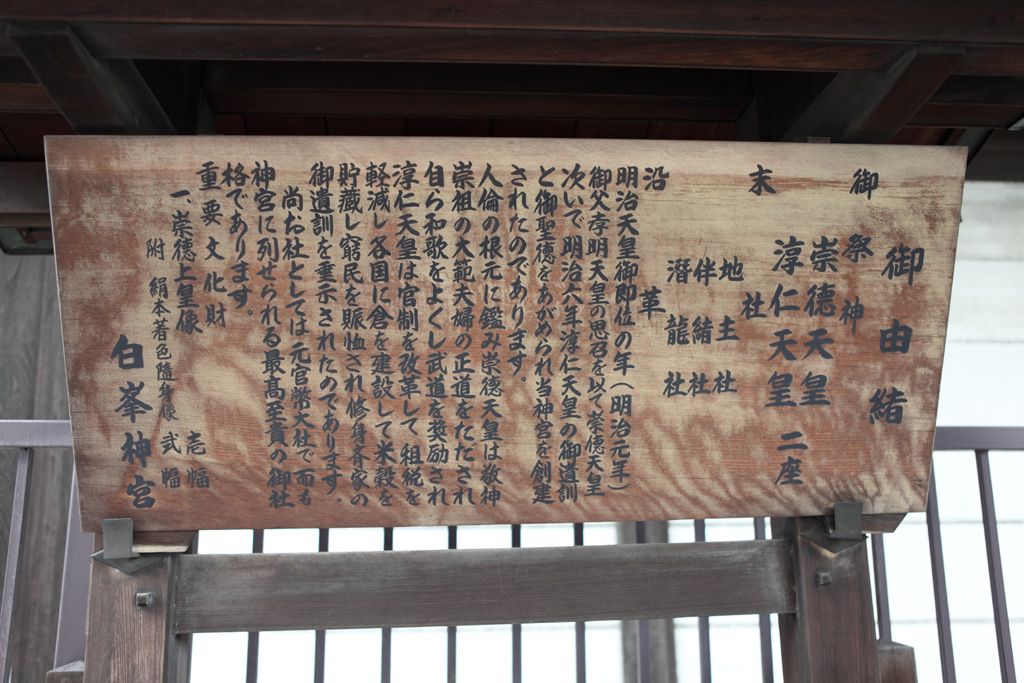 御由緒
御祭神
崇德天皇
淳仁天皇 二座
末社
地主社
伴緒社
潛龍社
沿革
明治天皇御即位の年(明治元年)
御父孝明天皇の思召を以て崇德天皇
次いで明治六年淳仁天皇の御遺訓
と御聖德をあがめられ当神宮を創建
されたのであります。
人倫の根元に鑑み崇德天皇は敬神
崇祖の大範夫婦の正道をたたされ
自ら和歌をよくし武道を奨励され
淳仁天皇は官制を改革して租税を
軽減し各国に倉を建設して米穀を
貯蔵し窮民を賑恤され修身斉家の
御遺訓を垂示されたのであります。
尚お社としては元官幣大社で而も
神宮に列せられる最高至貴の御社
格であります。
重要文化財
一、崇德上皇像 壱幅
附 絹本著色隨身像 弐幅
白峯神宮